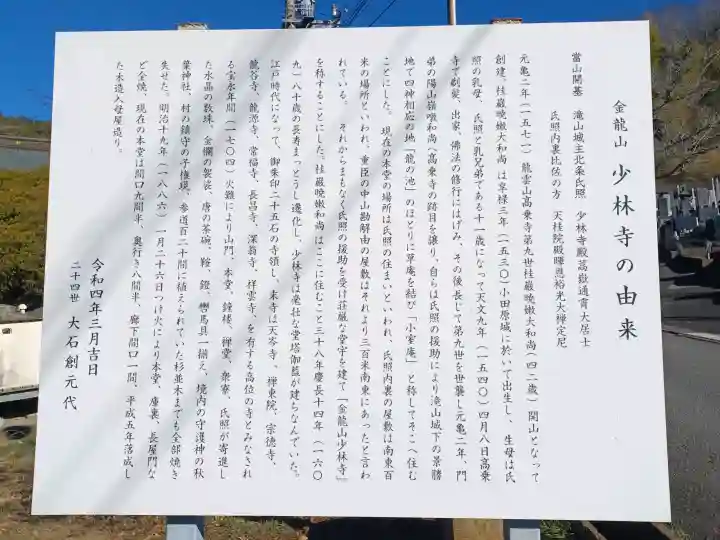 金龍山 少林寺の由来
當山開基 滝山城主北条氏照 少林寺殿嵩嶽通霄大居士
氏照内裏比佐の方 天桂院殿暉窓裕光大禅定尼
元亀二年(一五七一)龍雲山高乗寺第九世桂巌暁嫩大和尚(四二歳)開山となって
創建。桂巌暁嫩大和尚は享禄三年(一五三〇)小田原城に於いて出生し、生母は氏
照の乳母、氏照と乳兄弟である十一歳になって天文九年(一五四〇)四月八日高乗
寺で剃髪、出家、佛法の修行にはげみ、その後長じて第九世を世襲し元亀二年、門
弟の陽山嶺暾和尚へ高乗寺の跡目を譲り、自らは氏照の援助により滝山城下の景勝
地で四神相応の地「龍の池」のほとりに草庵を結び「小室庵」と称してそこへ住む
ことにした。現在の本堂の場所は氏照の住まいといわれ、氏照内裏の屋敷は南東百
米の場所といわれ、重臣の中山勘解由の屋敷はそれより三百米南東にあったと言わ
れている。 それからまもなく氏照の援助を受け荘厳な堂宇を建て「金龍山少林寺」
を称することにした。桂巌暁嫩和尚はここに住むこと三十八年慶長十四年(一六〇
九)八十歳の長寿まっとうし遷化し、少林寺は壱壮な堂塔伽藍が建ちならんでいた。
江戸時代になって、御朱印二十五石の寺領し、末寺は天岑寺、禅東院、宗徳寺、
龍谷寺、龍源寺、常福寺、長昌寺、深翁寺、祥雲寺、を有する高位の寺とみなされ
る宝永年間(一七〇四)火難により山門、本堂、鐘楼、禅堂、衆寮、氏照が寄進し
た水晶の数珠、金襴の袈裟、唐の茶碗、鞍、鐙、轡馬具一揃え、境内の守護神の秋
葉神社、村の鎮守の子権現、参道百二十間に植えられていた杉並木までも全部焼き
失せた。明治十九年(一八八六)一月二十六日つけ火により本堂、庫裏、長屋門な
ど全焼、現在の本堂は間口九間半、奥行き八間半、廊下間口一間、平成五年落成し
た木造入母屋造り。
令和四年三月吉日
二十四世 大石創元 代